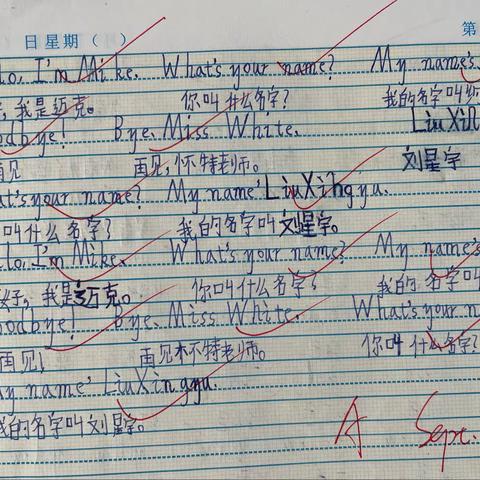 日 星期 ( ) 第
lo, I'm Mike. What's your name? My name's
我是迈克。 你叫什么名字? 我的名字叫
odbye! Bye, Miss White. LiuXin
再见 再见,怀特老师。 刘星宇
at's your name? My name' LiuXingyu.
叫什么名字? 我的名字叫刘星宇。
lo, I'm Mike. What's your name? My name's
好,我是迈克。 你叫什么名字? 我的名字叫
odbye! Bye, Miss White. What's your n
再见! 再见木不特老师。 你叫什么名字?
y name' LiuXingyu.
我的名字叫刘星宇。
A Sept.